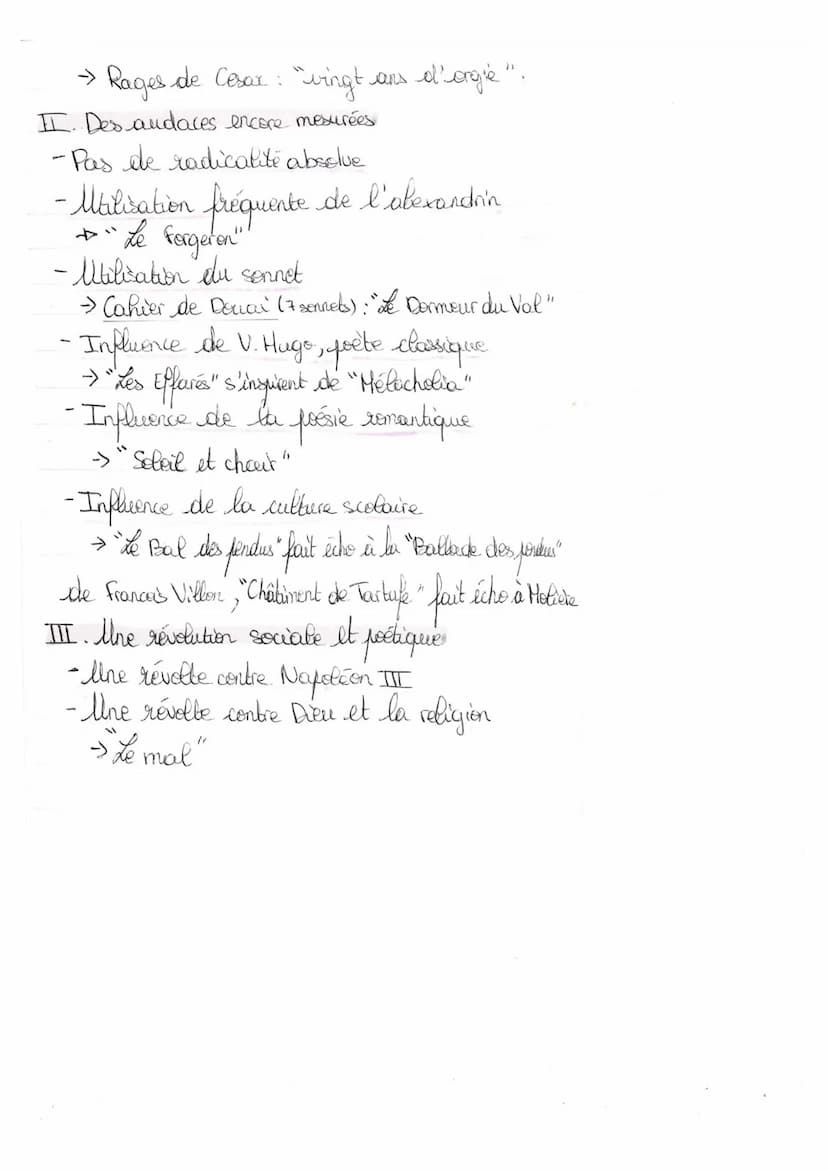 → Rages de Cesar : "vingt ans d'orgie".
II. Des audaces encore mesurées
- Pas de radicalité absolue
- Utilisation fréquente de l'alexandrin
→ "Le Forgeron"
- Utilisation du sonnet
→ Cahier de Douai (7 sonnets) : "Le Dormeur du Val"
- Influence de V. Hugo, poète classique
→ "Les Effarés" s'inspirent de "Mélacholia"
- Influence de la poésie romantique
→ "Soleil et chair"
- Influence de la culture scolaire
→ "Le Bal des pendus" fait écho à la "Ballade des pendus"
de Francois Villon, "Châtiment de Tartufe" fait écho à Molière
III. Une révolution sociale et poétique
- Une révolte contre Napoléon III
- Une révolte contre Dieu et la religion
→ "Le mal"